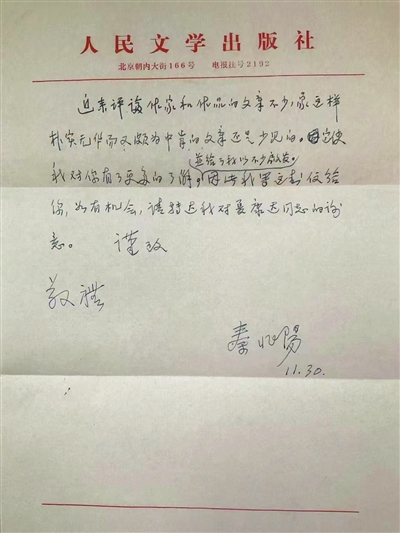 人民文学出版社
北京朝内大街166号 电报挂号2192
近来评论作家和作品的文章不少,象这样
朴实无华而又颇为中肯的文章还是少见的。它使
并给了我以不少启发。
我对你有了更多的了解,因此我要写封信给
你,如有机会,请转达我对夏康达同志的谢
意。 谨致
敬礼
秦兆阳
11.30.